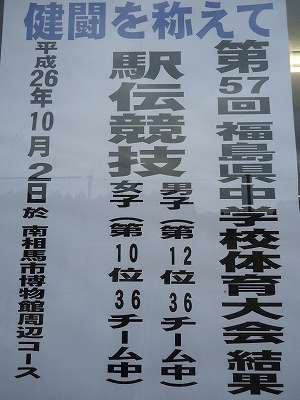 健闘を称えて
第57回 福島県中学校体育大会 結果
駅伝競技
男子（第12位36チーム中）
女子（第10位36チーム中）
平成26年10月2日 於 南相馬市博物館周辺コース